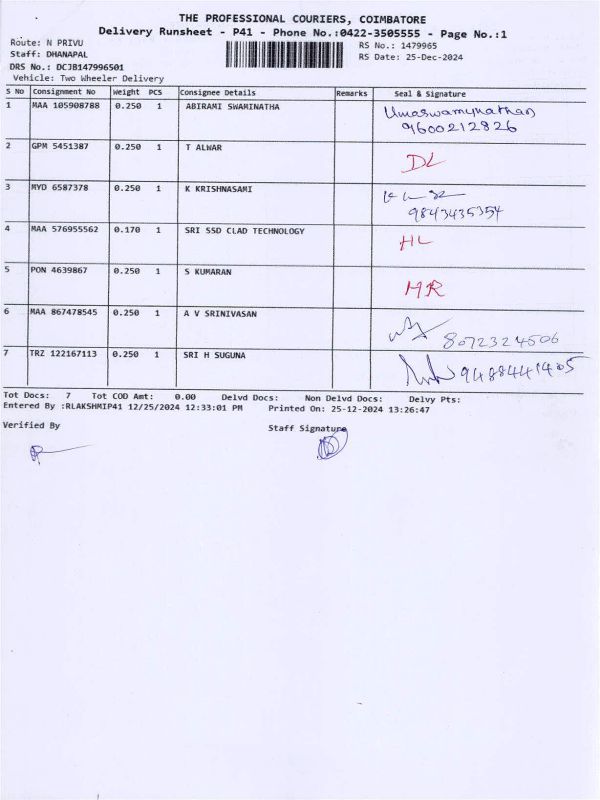 THE PROFESSIONAL COURIERS, COIMBATORE
Delivery Runsheet - P41 - Phone No.:0422-3505555 - Page No.:1
Route: N PRIVU RS No.: 1479965
Staff: DHANAPAL RS Date: 25-Dec-2024
DRS No.: DCJB147996501
Vehicle: Two Wheeler Delivery
S No Consignment No Weight PCS Consignee Details Remarks Seal & Signature
1 MAA 105908788 0.250 1 ABIRAMI SWAMINATHA Umaswamynathan
9600212826
2 GPM 5451387 0.250 1 T ALWAR DL
3 MYD 6587378 0.250 1 K KRISHNASAMI
9843435354
4 MAA 576955562 0.170 1 SRI SSD CLAD TECHNOLOGY HL
5 PON 4639867 0.250 1 S KUMARAN MR
6 MAA 867478545 0.250 1 A V SRINIVASAN 8072324506
7 TRZ 122167113 0.250 1 SRI H SUGUNA 9488441405
Tot Docs: 7 Tot COD Amt: 0.00 Delvd Docs: Non Delvd Docs: Delvy Pts:
Entered By :RLAKSHMIP41 12/25/2024 12:33:01 PM Printed On: 25-12-2024 13:26:47
Verified By Staff Signature